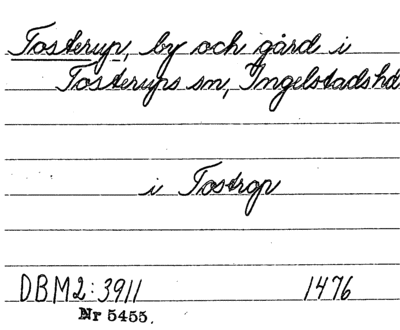 Tosterup, by och gård i
Tosterups sn, Ingelstads hd.
i Tostrop
DBM2:3911 1476
Nr 5455.